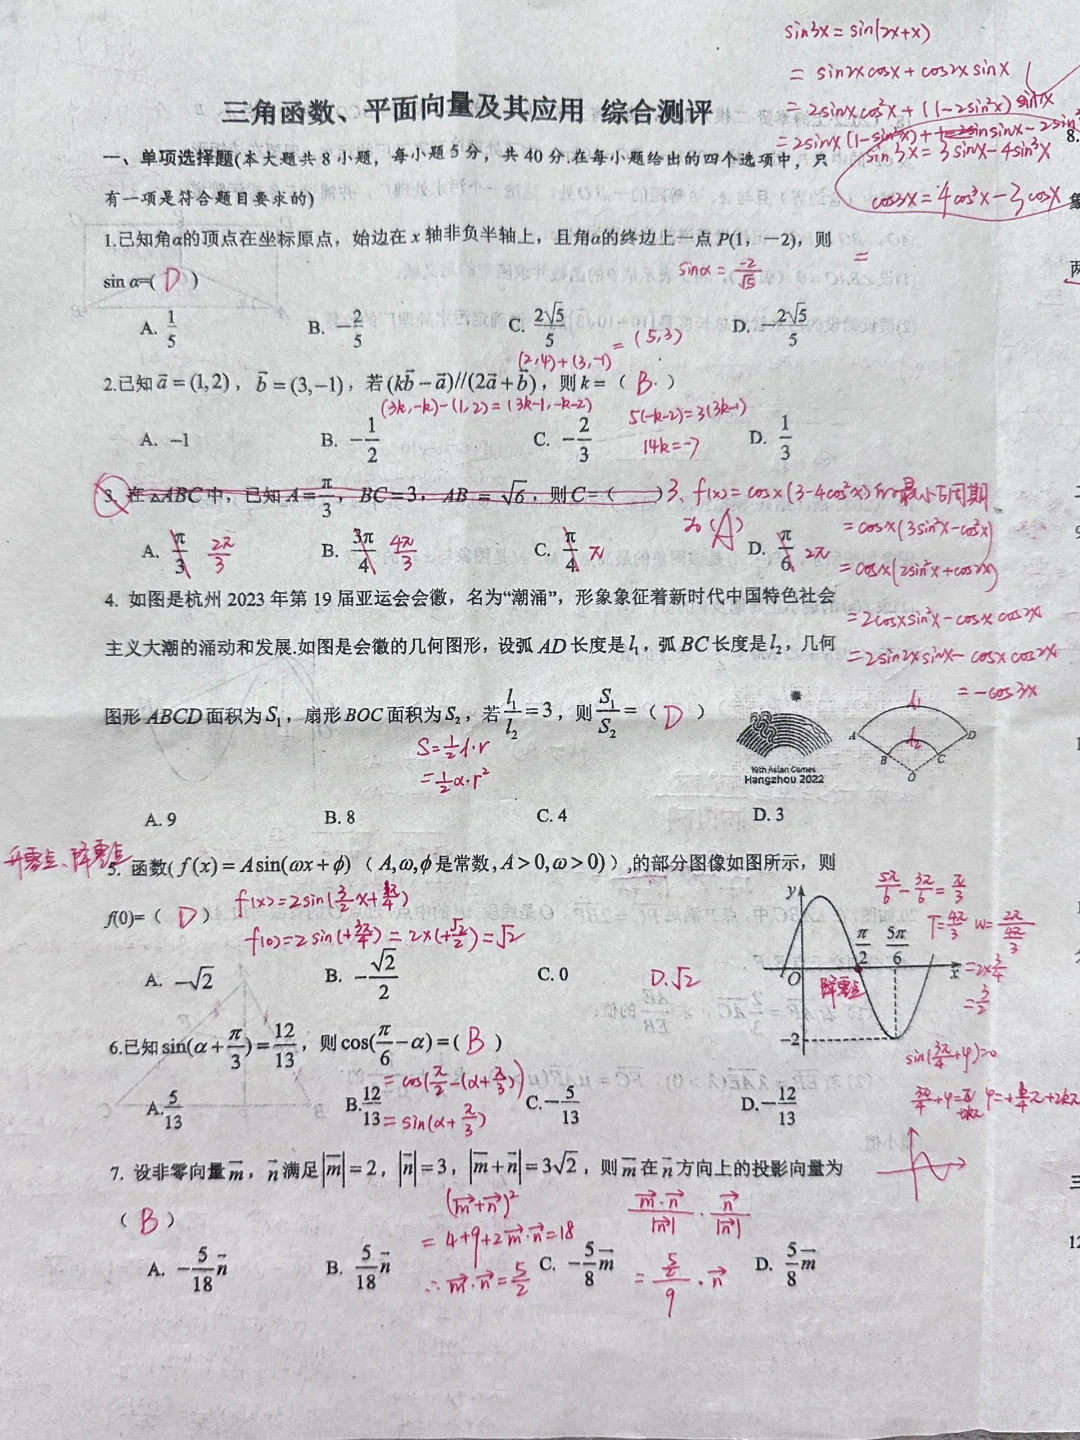 sin3x = sin(2x+x)
= sin2xcosx + cos2x sinx
= 2sinxcos²x + (1-2sin²x) sinx
= 2sinx(1-sin²x) + sinx - 2sin³
sin3x = 3sinx - 4sin³x
cos3x = 4cos³x - 3cosx
三角函数、平面向量及其应用 综合测评
一、单项选择题(本大题共 8 小题，每小题 5 分，共 40 分.在每小题给出的四个选项中，只
有一项是符合题目要求的)
8.
1.已知角α的顶点在坐标原点，始边在 x 轴非负半轴上，且角α的终边上一点 P(1，−2)，则
sin α=( D )
sinα = -2/√5
=
A. 1/5 B. −2/5 C. 2√5/5 D. −2√5/5
(2,4)+(3,-1) = (5,3)
2.已知 a⃗ = (1,2)，b⃗ = (3,−1)，若 (kb⃗ − a⃗)//(2a⃗ + b⃗)，则 k =（ B ）
(3k,-k)-(1,2) = (3k-1,-k-2)
5(-k-2)=3(3k-1)
14k=-7
A. −1 B. −1/2 C. −2/3 D. 1/3
3. 在 △ABC 中，已知 A = π/3，BC = 3，AB = √6，则 C =（ ）
3、f(x) = cosx(3-4cos²x)的最小正周期
为(A)
= cosx(3sin²x-cos²x)
= cosx(2sin²x+cos2x)
= 2cosxsin²x - cosx cos2x
= 2sin2x sinx - cosx cos2x
= -cos3x
A. π/3 2π/3 B. 3π/4 4π/3 C. π/4 π D. π/6 2π
4. 如图是杭州 2023 年第 19 届亚运会会徽，名为“潮涌”，形象象征着新时代中国特色社会
主义大潮的涌动和发展.如图是会徽的几何图形，设弧 AD 长度是 l₁，弧 BC 长度是 l₂，几何
图形 ABCD 面积为 S₁，扇形 BOC 面积为 S₂，若 l₁/l₂ = 3，则 S₁/S₂ =（ D ）
S = 1/2 l·r
= 1/2 α·r²
19th Asian Games
Hangzhou 2022
l₁
l₂
A D
B C
O
A. 9 B. 8 C. 4 D. 3
升零点、降零点
5. 函数( f(x) = A sin(ωx + ϕ)（ A, ω, ϕ 是常数, A > 0, ω > 0)）,的部分图像如图所示，则
f(0)=（ D ）
f(x)=2sin(3/2x+3π/4)
f(0)=2sin(+3π/4) = 2×(+√2/2) = √2
A. −√2 B. −√2/2 C. 0 D. √2
y
π/2 5π/6
O
x
降零点
−2
5π/6 - 3π/6 = π/3
T=4π/3 w= 2π/(4π/3)
=2×3/4
=3/2
sin(3π/4+φ)=0
6.已知 sin(α + π/3) = 12/13，则 cos(π/6 − α) = ( B )
= cos(π/2-(α+π/3))
= sin(α+π/3)
A. 5/13 B. 12/13 C. −5/13 D. −12/13
7. 设非零向量 m⃗，n⃗ 满足 |m⃗| = 2，|n⃗| = 3，|m⃗ + n⃗| = 3√2，则 m⃗ 在 n⃗ 方向上的投影向量为
（ B ）
(m⃗+n⃗)²
= 4+9+2m⃗·n⃗=18
∴ m⃗·n⃗ = 5/2
m⃗·n⃗/|n⃗| · n⃗/|n⃗|
= (5/2)/9 · n⃗
A. −5/18 n⃗ B. 5/18 n⃗ C. −5/8 m⃗ D. 5/8 m⃗